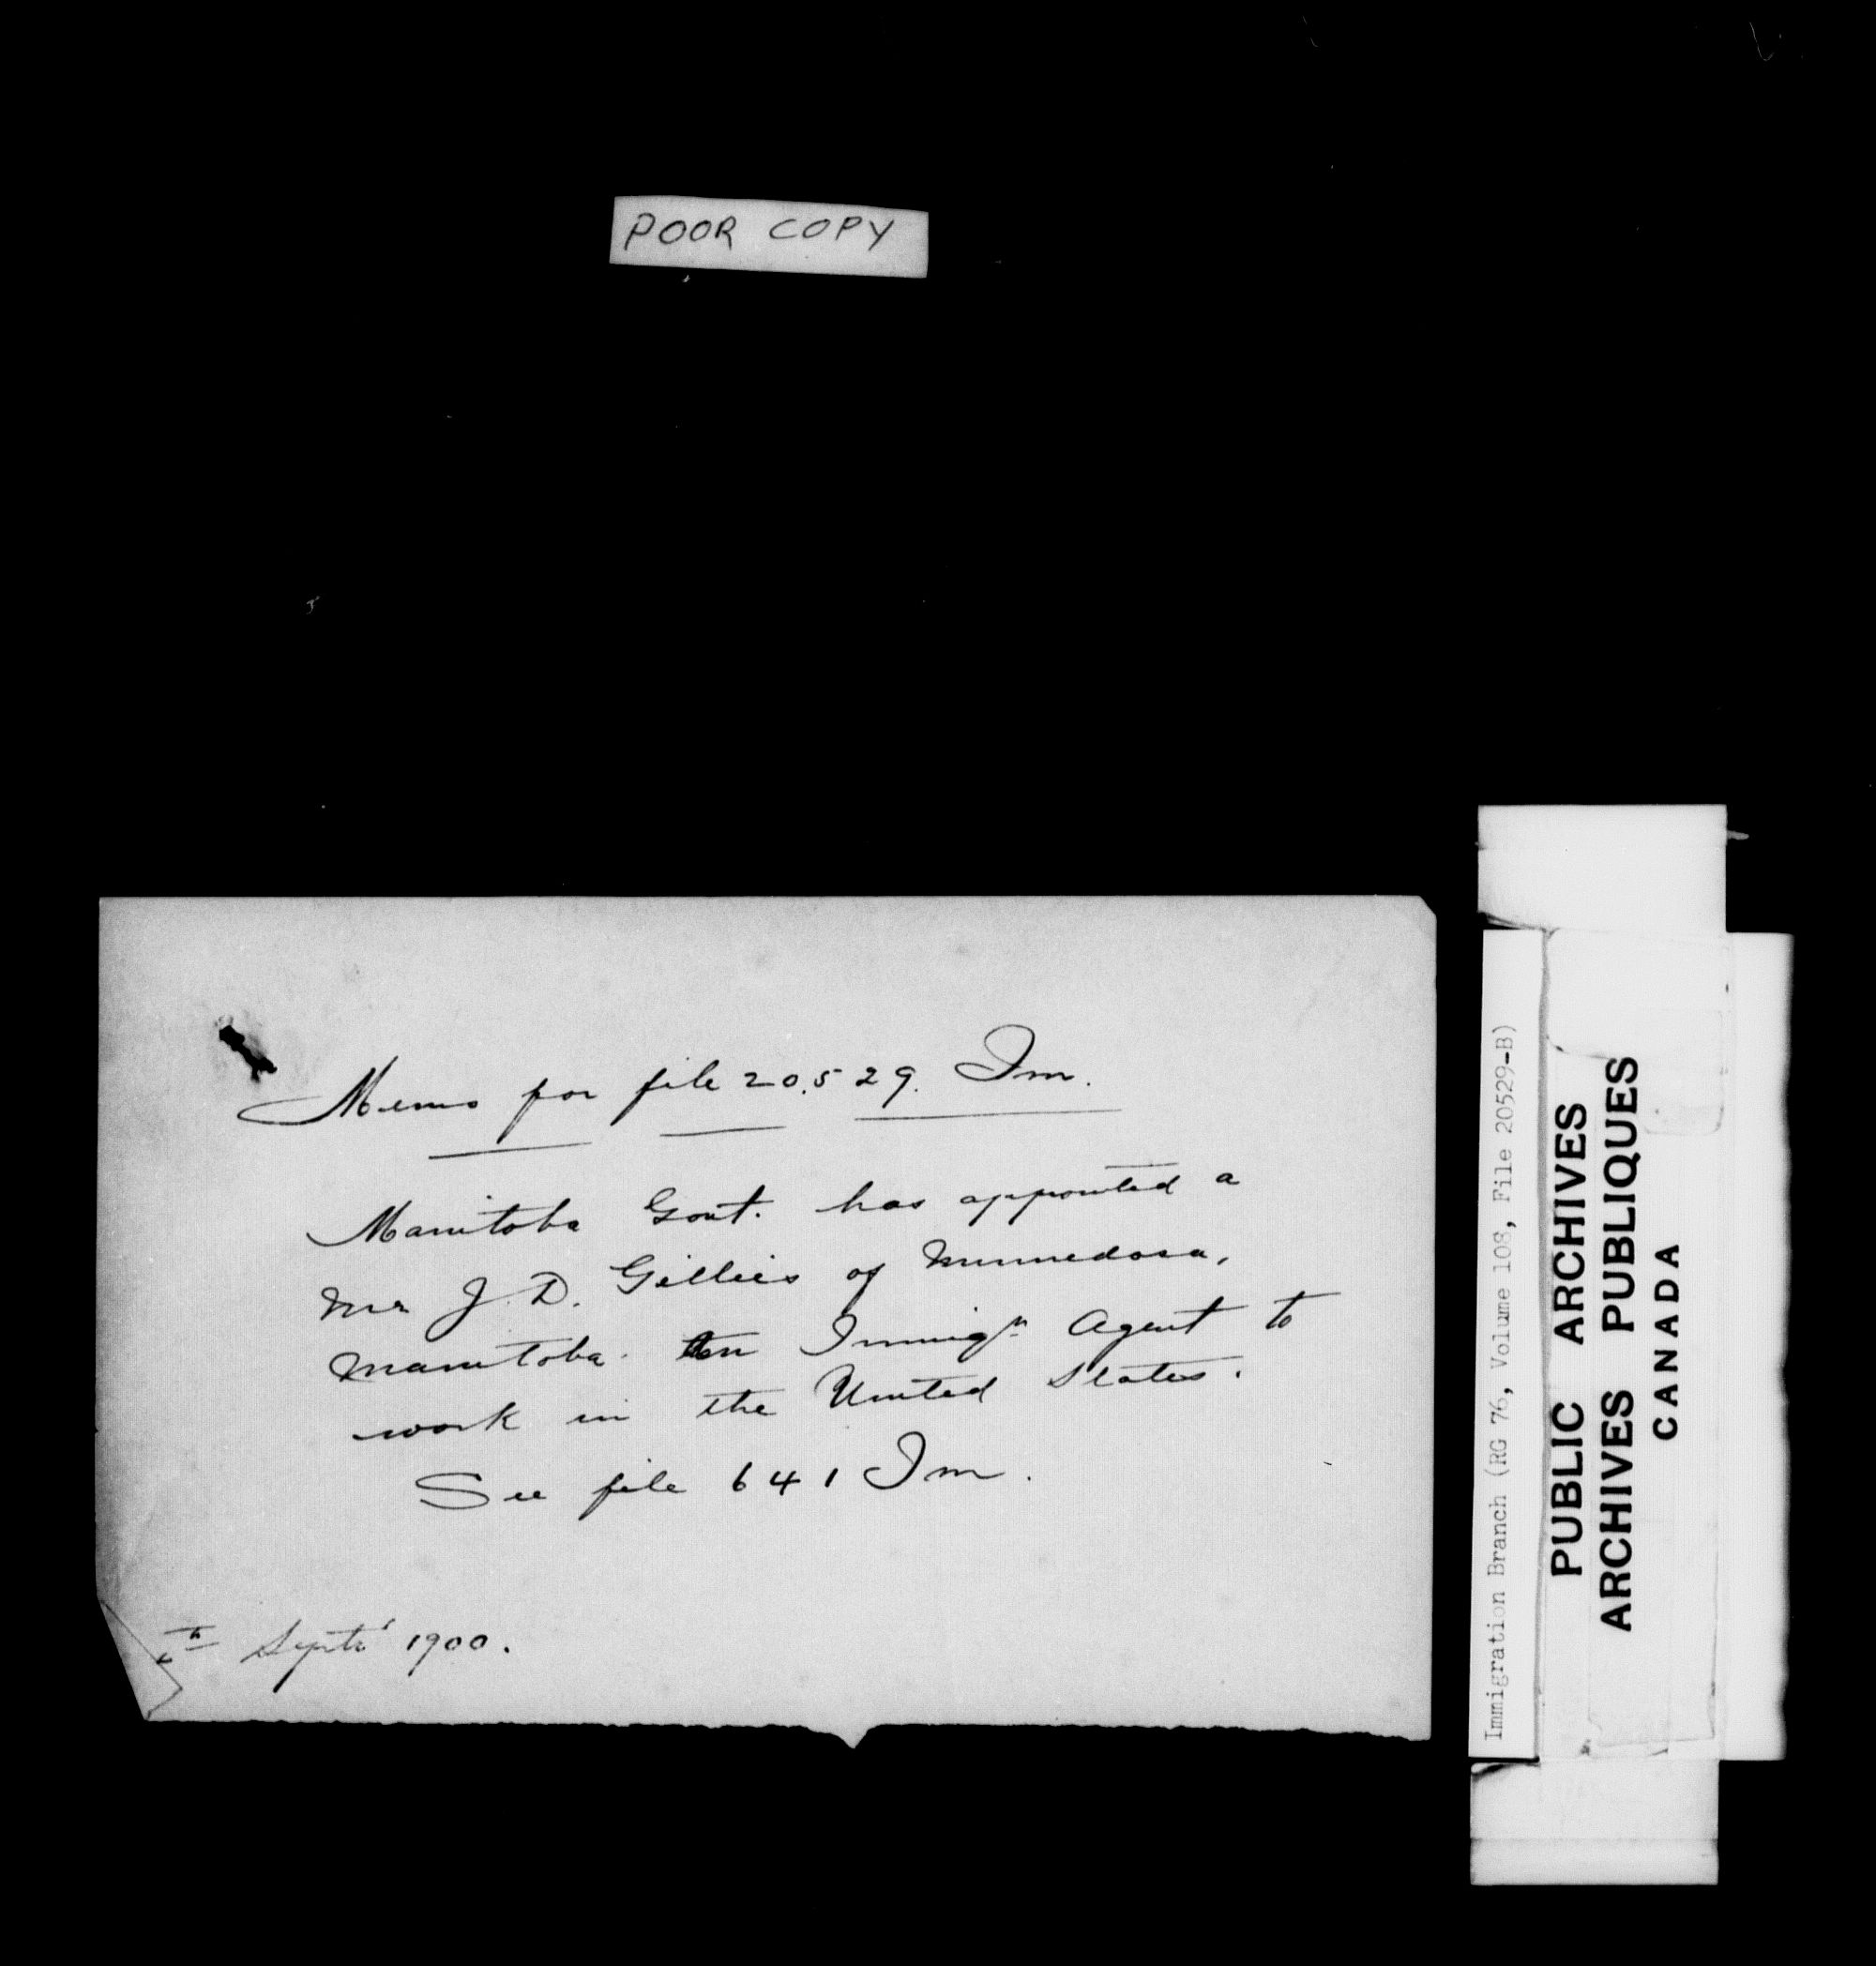 POOR COPY
Memo for file 20.529. Im.
Manitoba Govt. has appointed a
Mr J. D. Gillies of Minnedosa,
Manitoba. an Immign Agent to
work in the United States.
See file 641 Im.
th Septr 1900.
Immigration Branch (RG 76, Volume 108, File 20529-B)
PUBLIC ARCHIVES
ARCHIVES PUBLIQUES
CANADA